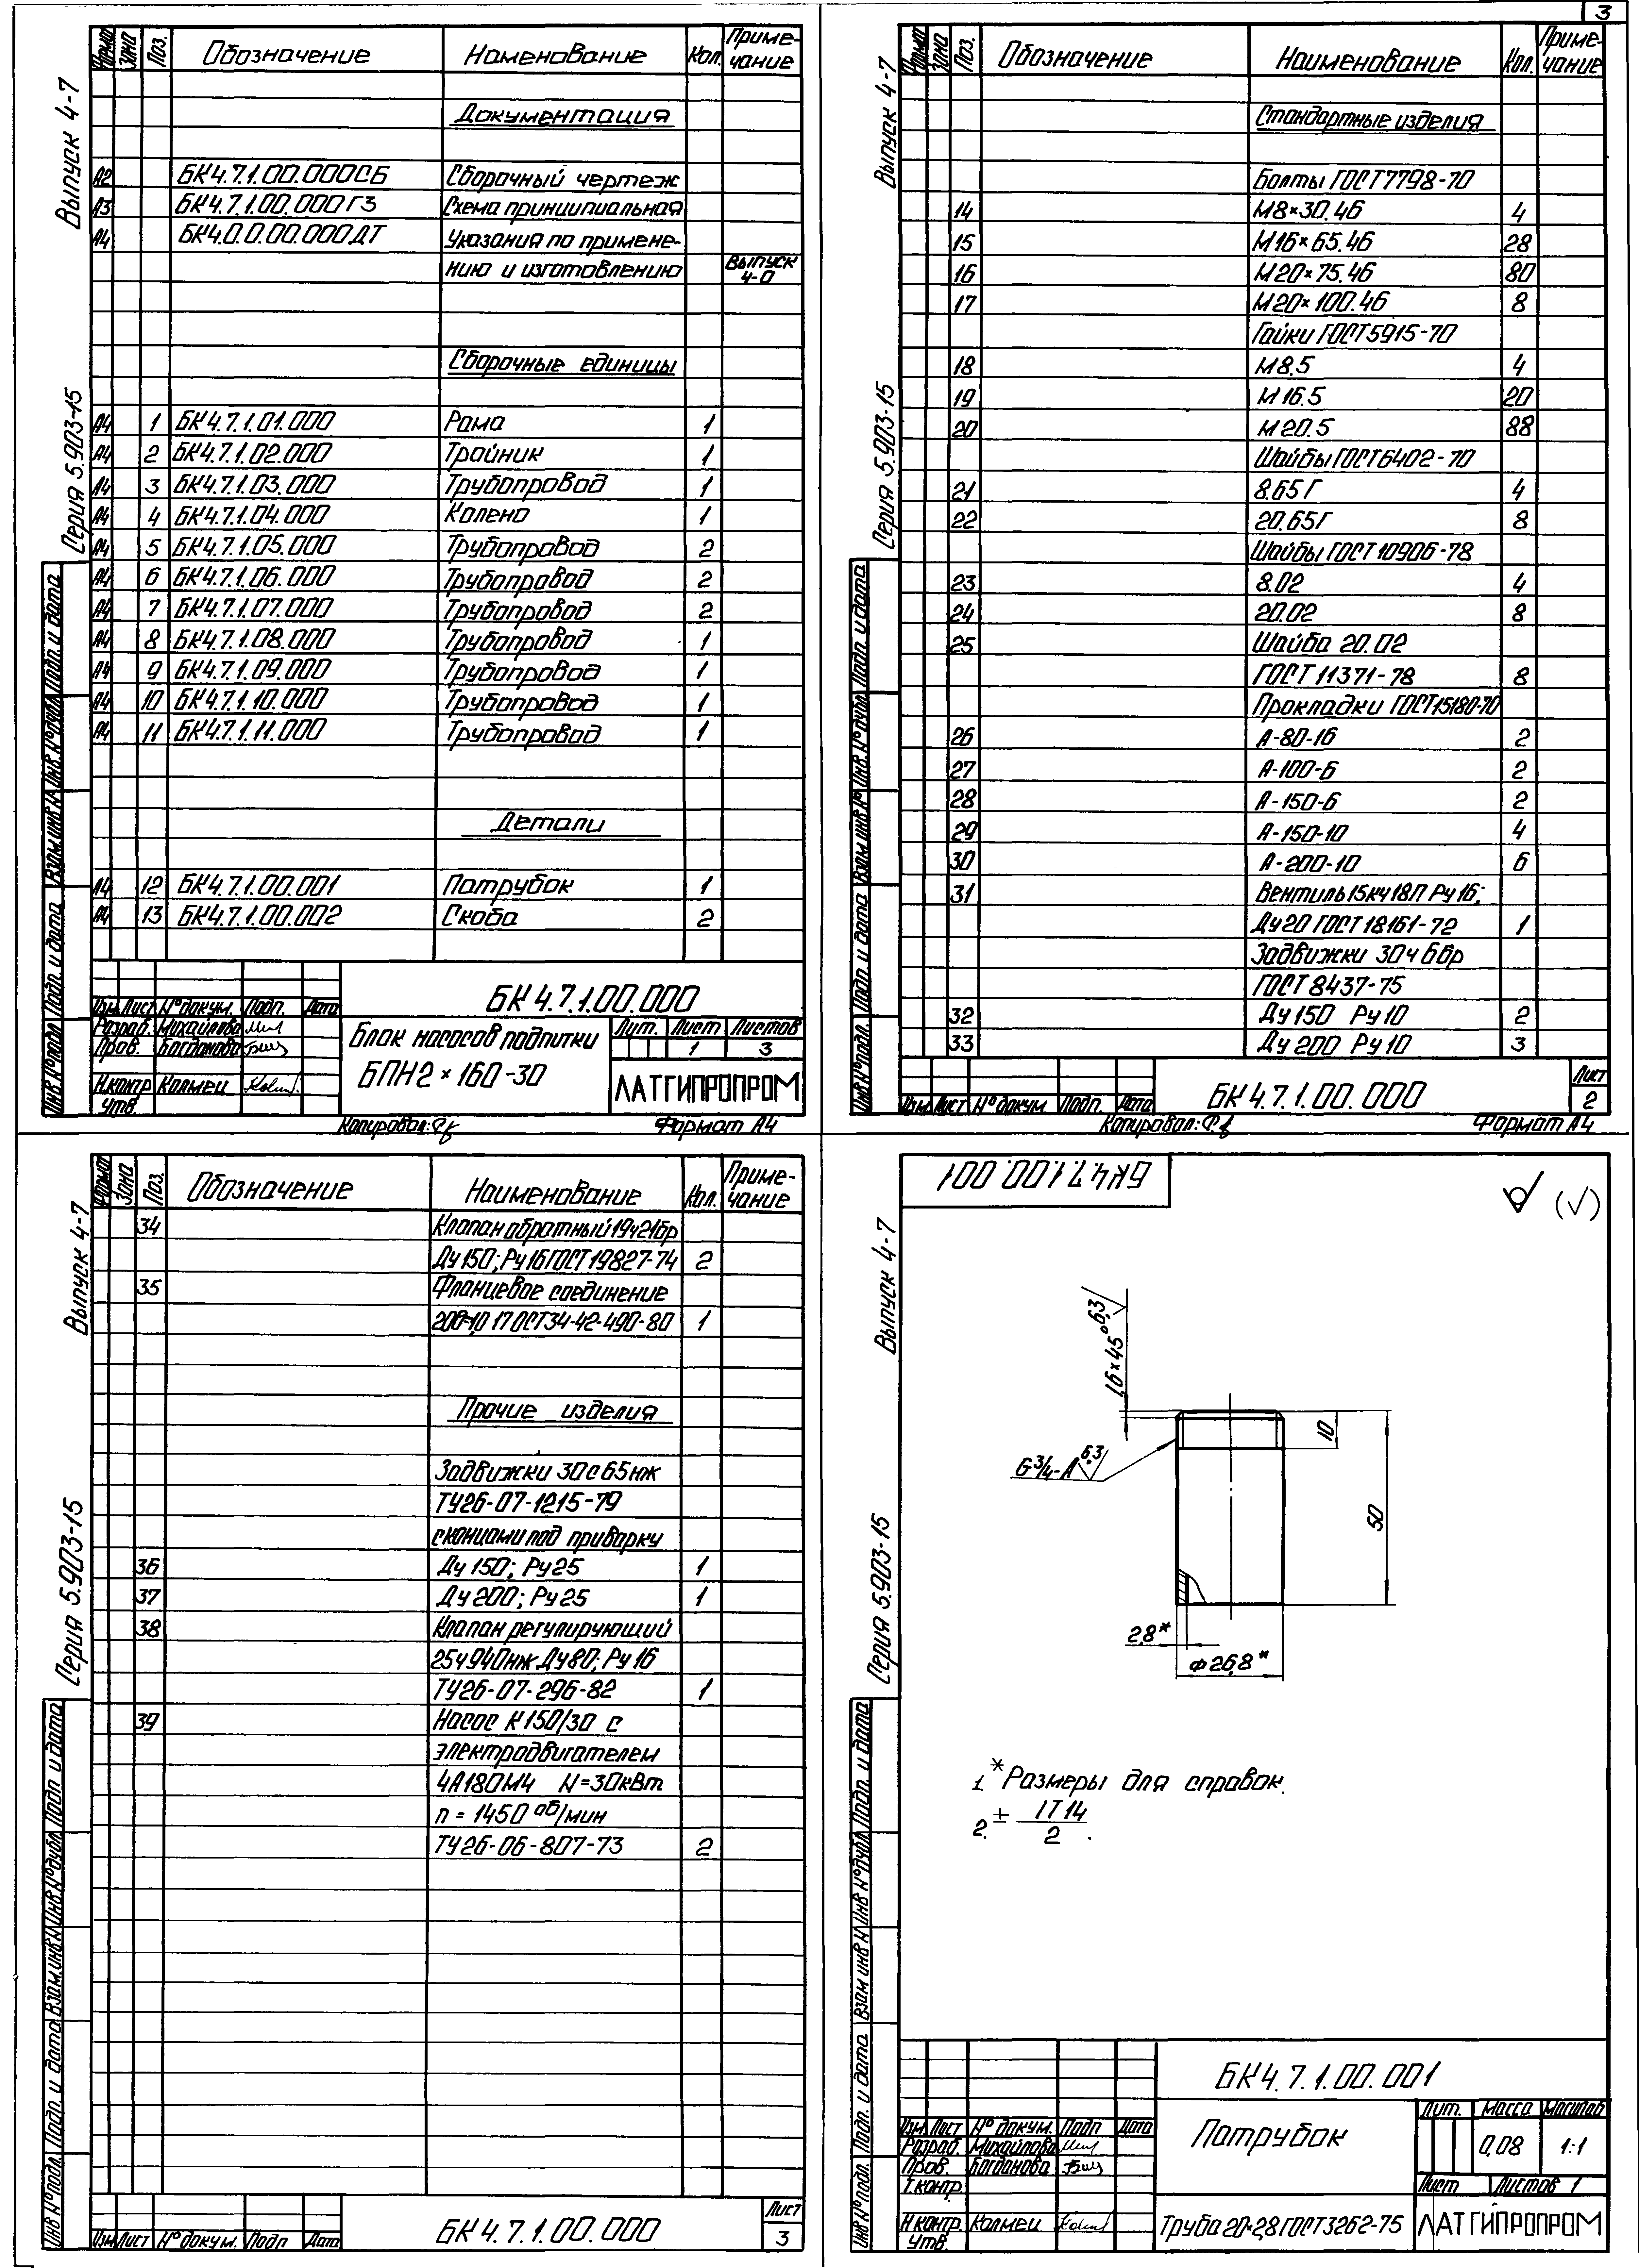 3
Выпуск 4-7
Серия 5.903-15
Формат Зона Поз. Обозначение Наименование Кол. Приме-
чание
Документация
А2 БК4.7.1.00.000СБ Сборочный чертеж
А3 БК4.7.1.00.000Г3 Схема принципиальная
А4 БК4.0.0.00.000ДТ Указания по примене-
нию и изготовлению Выпуск
4-0
Сборочные единицы
А4 1 БК4.7.1.01.000 Рама 1
А4 2 БК4.7.1.02.000 Тройник 1
А4 3 БК4.7.1.03.000 Трубопровод 1
А4 4 БК4.7.1.04.000 Колено 1
А4 5 БК4.7.1.05.000 Трубопровод 2
А4 6 БК4.7.1.06.000 Трубопровод 2
А4 7 БК4.7.1.07.000 Трубопровод 2
А4 8 БК4.7.1.08.000 Трубопровод 1
А4 9 БК4.7.1.09.000 Трубопровод 1
А4 10 БК4.7.1.10.000 Трубопровод 1
А4 11 БК4.7.1.11.000 Трубопровод 1
Детали
А4 12 БК4.7.1.00.001 Патрубок 1
А4 13 БК4.7.1.00.002 Скоба 2
Инв.№подл. Подп. и дата Взам.инв.№ Инв.№дубл. Подп. и дата
БК4.7.1.00.000
Изм. Лист №докум. Подп. Дата
Разраб. Михайлова
Пров. Богданова
Н.контр. Колмец
Утв.
Блок насосов подпитки
БПН2×160-30
Лит. Лист Листов
1 3
ЛАТГИПРОПРОМ
Копировал: Формат А4
Выпуск 4-7
Серия 5.903-15
Формат Зона Поз. Обозначение Наименование Кол. Приме-
чание
Стандартные изделия
Болты ГОСТ7798-70
14 М8×30.46 4
15 М16×65.46 28
16 М20×75.46 80
17 М20×100.46 8
Гайки ГОСТ5915-70
18 М8.5 4
19 М16.5 20
20 М20.5 88
Шайбы ГОСТ6402-70
21 8.65Г 4
22 20.65Г 8
Шайбы ГОСТ10906-78
23 8.02 4
24 20.02 8
25 Шайба 20.02
ГОСТ 11371-78 8
Прокладки ГОСТ15180-70
26 А-80-16 2
27 А-100-6 2
28 А-150-6 2
29 А-150-10 4
30 А-200-10 6
31 Вентиль15кч18П Ру16;
Ду20 ГОСТ18161-72 1
Задвижки 30ч6бр
ГОСТ 8437-75
32 Ду150 Ру10 2
33 Ду200 Ру10 3
Инв.№подл. Подп. и дата Взам.инв.№ Инв.№дубл. Подп. и дата
Изм. Лист №докум. Подп. Дата
БК4.7.1.00.000
Лист
2
Копировал: Формат А4
Выпуск 4-7
Серия 5.903-15
Формат Зона Поз. Обозначение Наименование Кол. Приме-
чание
34 Клапан обратный19ч21бр
Ду150; Ру16ГОСТ19827-74 2
35 Фланцевое соединение
200-10 17 ОСТ34-42-490-80 1
Прочие изделия
Задвижки 30с65нж
ТУ26-07-1215-79
с концами под приварку
36 Ду150; Ру25 1
37 Ду200; Ру25 1
38 Клапан регулирующий
25ч940нж Ду80; Ру16
ТУ26-07-296-82 1
39 Насос К150/30 с
электродвигателем
4А180М4 N=30кВт
n = 1450 об/мин
ТУ26-06-807-73 2
Инв.№подл. Подп. и дата Взам.инв.№ Инв.№дубл. Подп. и дата
Изм. Лист №докум. Подп. Дата
БК4.7.1.00.000
Лист
3
БК4.7.1.00.001
Выпуск 4-7
Серия 5.903-15
(√)
1,6×45° 6,3
G3/4-А 6,3
10
50
2,8*
ф26,8*
1. *Размеры для справок.
2. ± IT14
2 .
Инв.№подл. Подп. и дата Взам.инв.№ Инв.№дубл. Подп. и дата
БК4.7.1.00.001
Изм. Лист №докум. Подп. Дата
Разраб. Михайлова
Пров. Богданова
Т.контр.
Н.контр. Колмец
Утв.
Патрубок
Лит. Масса Масштаб
0,08 1:1
Лист Листов 1
Труба20-2,8ГОСТ3262-75
ЛАТГИПРОПРОМ